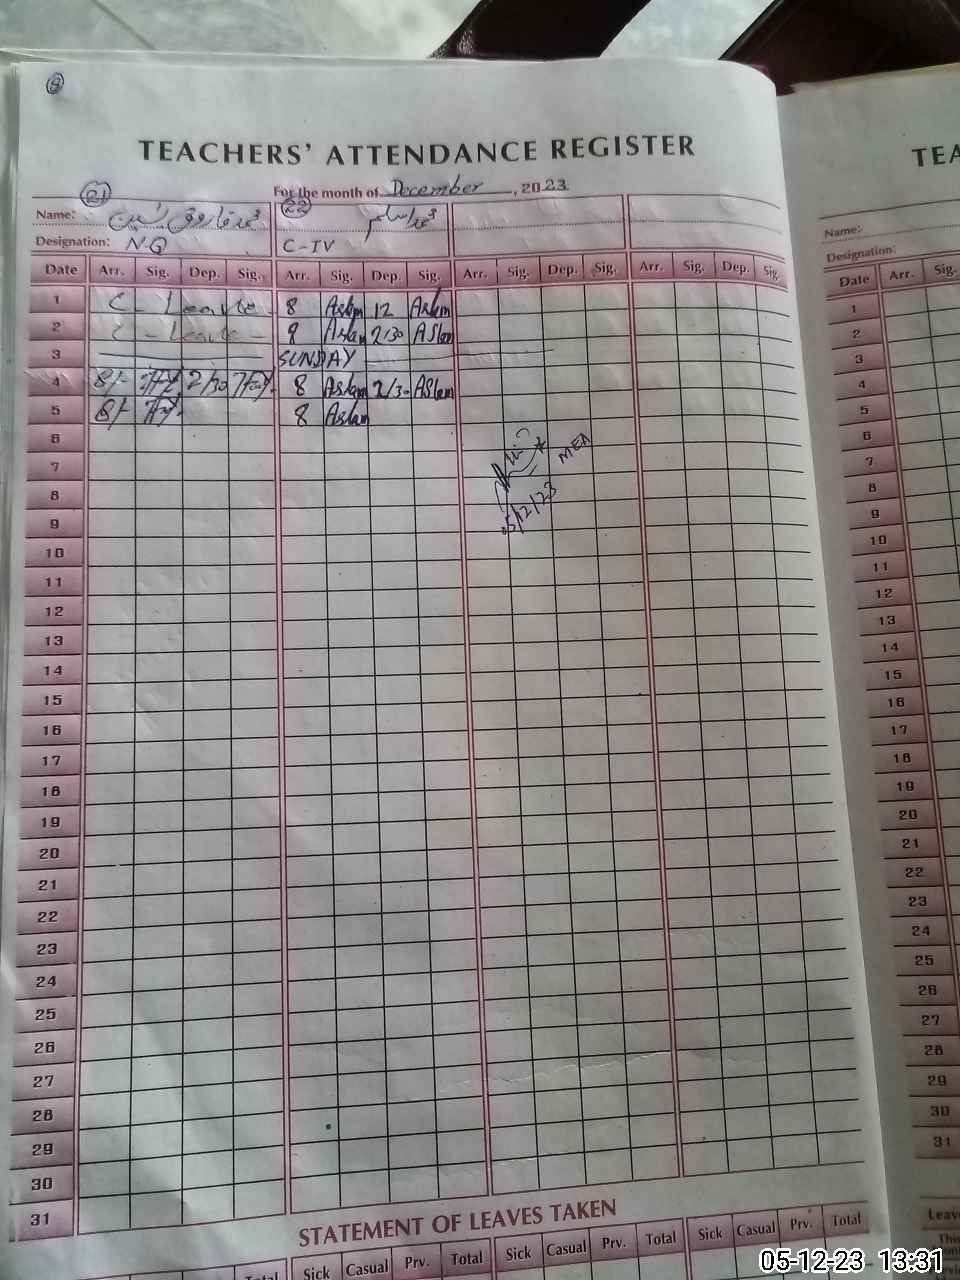 8
TEACHERS' ATTENDANCE REGISTER
For the month of December, 2023
21 22
Name: محمد فاروق یسین محمد اسلم
Designation: N.Q C-IV
Date Arr. Sig. Dep. Sig. Arr. Sig. Dep. Sig. Arr. Sig. Dep. Sig. Arr. Sig. Dep. Sig.
1 C - Leave 8 Aslam 12 Aslam
2 C - Leave - 8 Aslam 2/30 Aslam
3 SUNDAY
4 8/- 2/30 8 Aslam 2/30 Aslam
5 8/- 8 Aslam
6
7 MEA
8
9 05/12/23
10
11
12
13
14
15
16
17
18
19
20
21
22
23
24
25
26
27
28
29
30
31
STATEMENT OF LEAVES TAKEN
Total Sick Casual Prv. Total Sick Casual Prv. Total Sick Casual Prv. Total
TEA
Name:
Designation:
Date Arr. Sig.
1
2
3
4
5
6
7
8
9
10
11
12
13
14
15
16
17
18
19
20
21
22
23
24
25
26
27
28
29
30
31
Leave
This
05-12-23 13:31